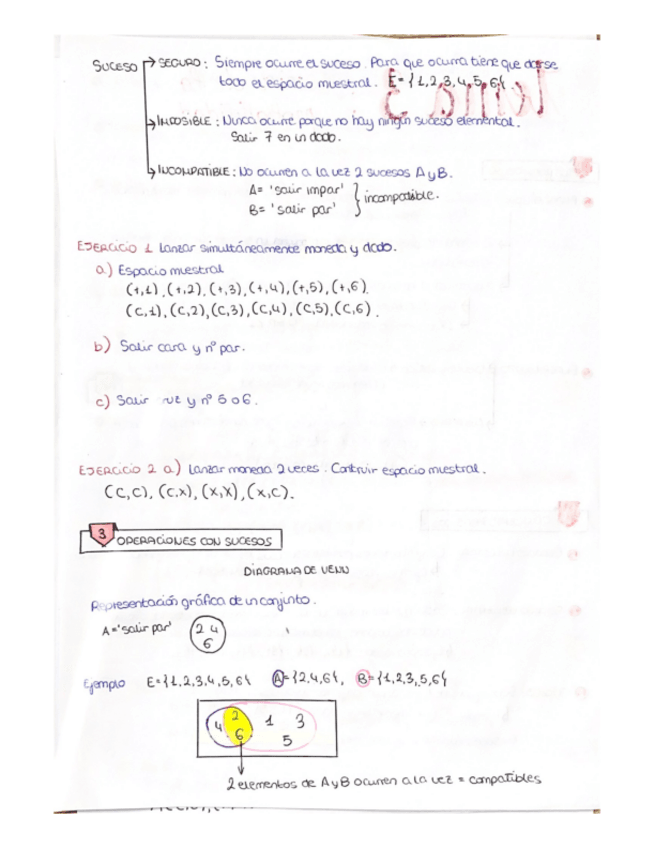 SUCESO → SEGURO: Siempre ocurre el suceso. Para que ocurra tiene que darse
todo el espacio muestral. E={1,2,3,4,5,6}.
→ IMPOSIBLE: Nunca ocurre porque no hay ningún suceso elemental.
Salir 7 en un dado.
→ INCOMPATIBLE: No ocurren a la vez 2 sucesos A y B.
A= 'salir impar'
B= 'salir par' } incompatible.
EJERCICIO 1 Lanzar simultáneamente moneda y dado.
a) Espacio muestral
(+,1), (+,2), (+,3), (+,4), (+,5), (+,6)
(C,1), (C,2), (C,3), (C,4), (C,5), (C,6).
b) Salir cara y nº par.
c) Salir y nº 5 o 6.
EJERCICIO 2 a) Lanzar moneda 2 veces. Contruir espacio muestral.
(C,C), (C,X), (X,X), (X,C).
3 OPERACIONES CON SUCESOS
DIAGRAMA DE VENN
Representación gráfica de un conjunto.
A='salir par' 2 4
6
Ejemplo E={1,2,3,4,5,6} A={2,4,6}, B={1,2,3,5,6}
4 2 1 3
6 5
2 elementos de A y B ocurren a la vez = compatibles